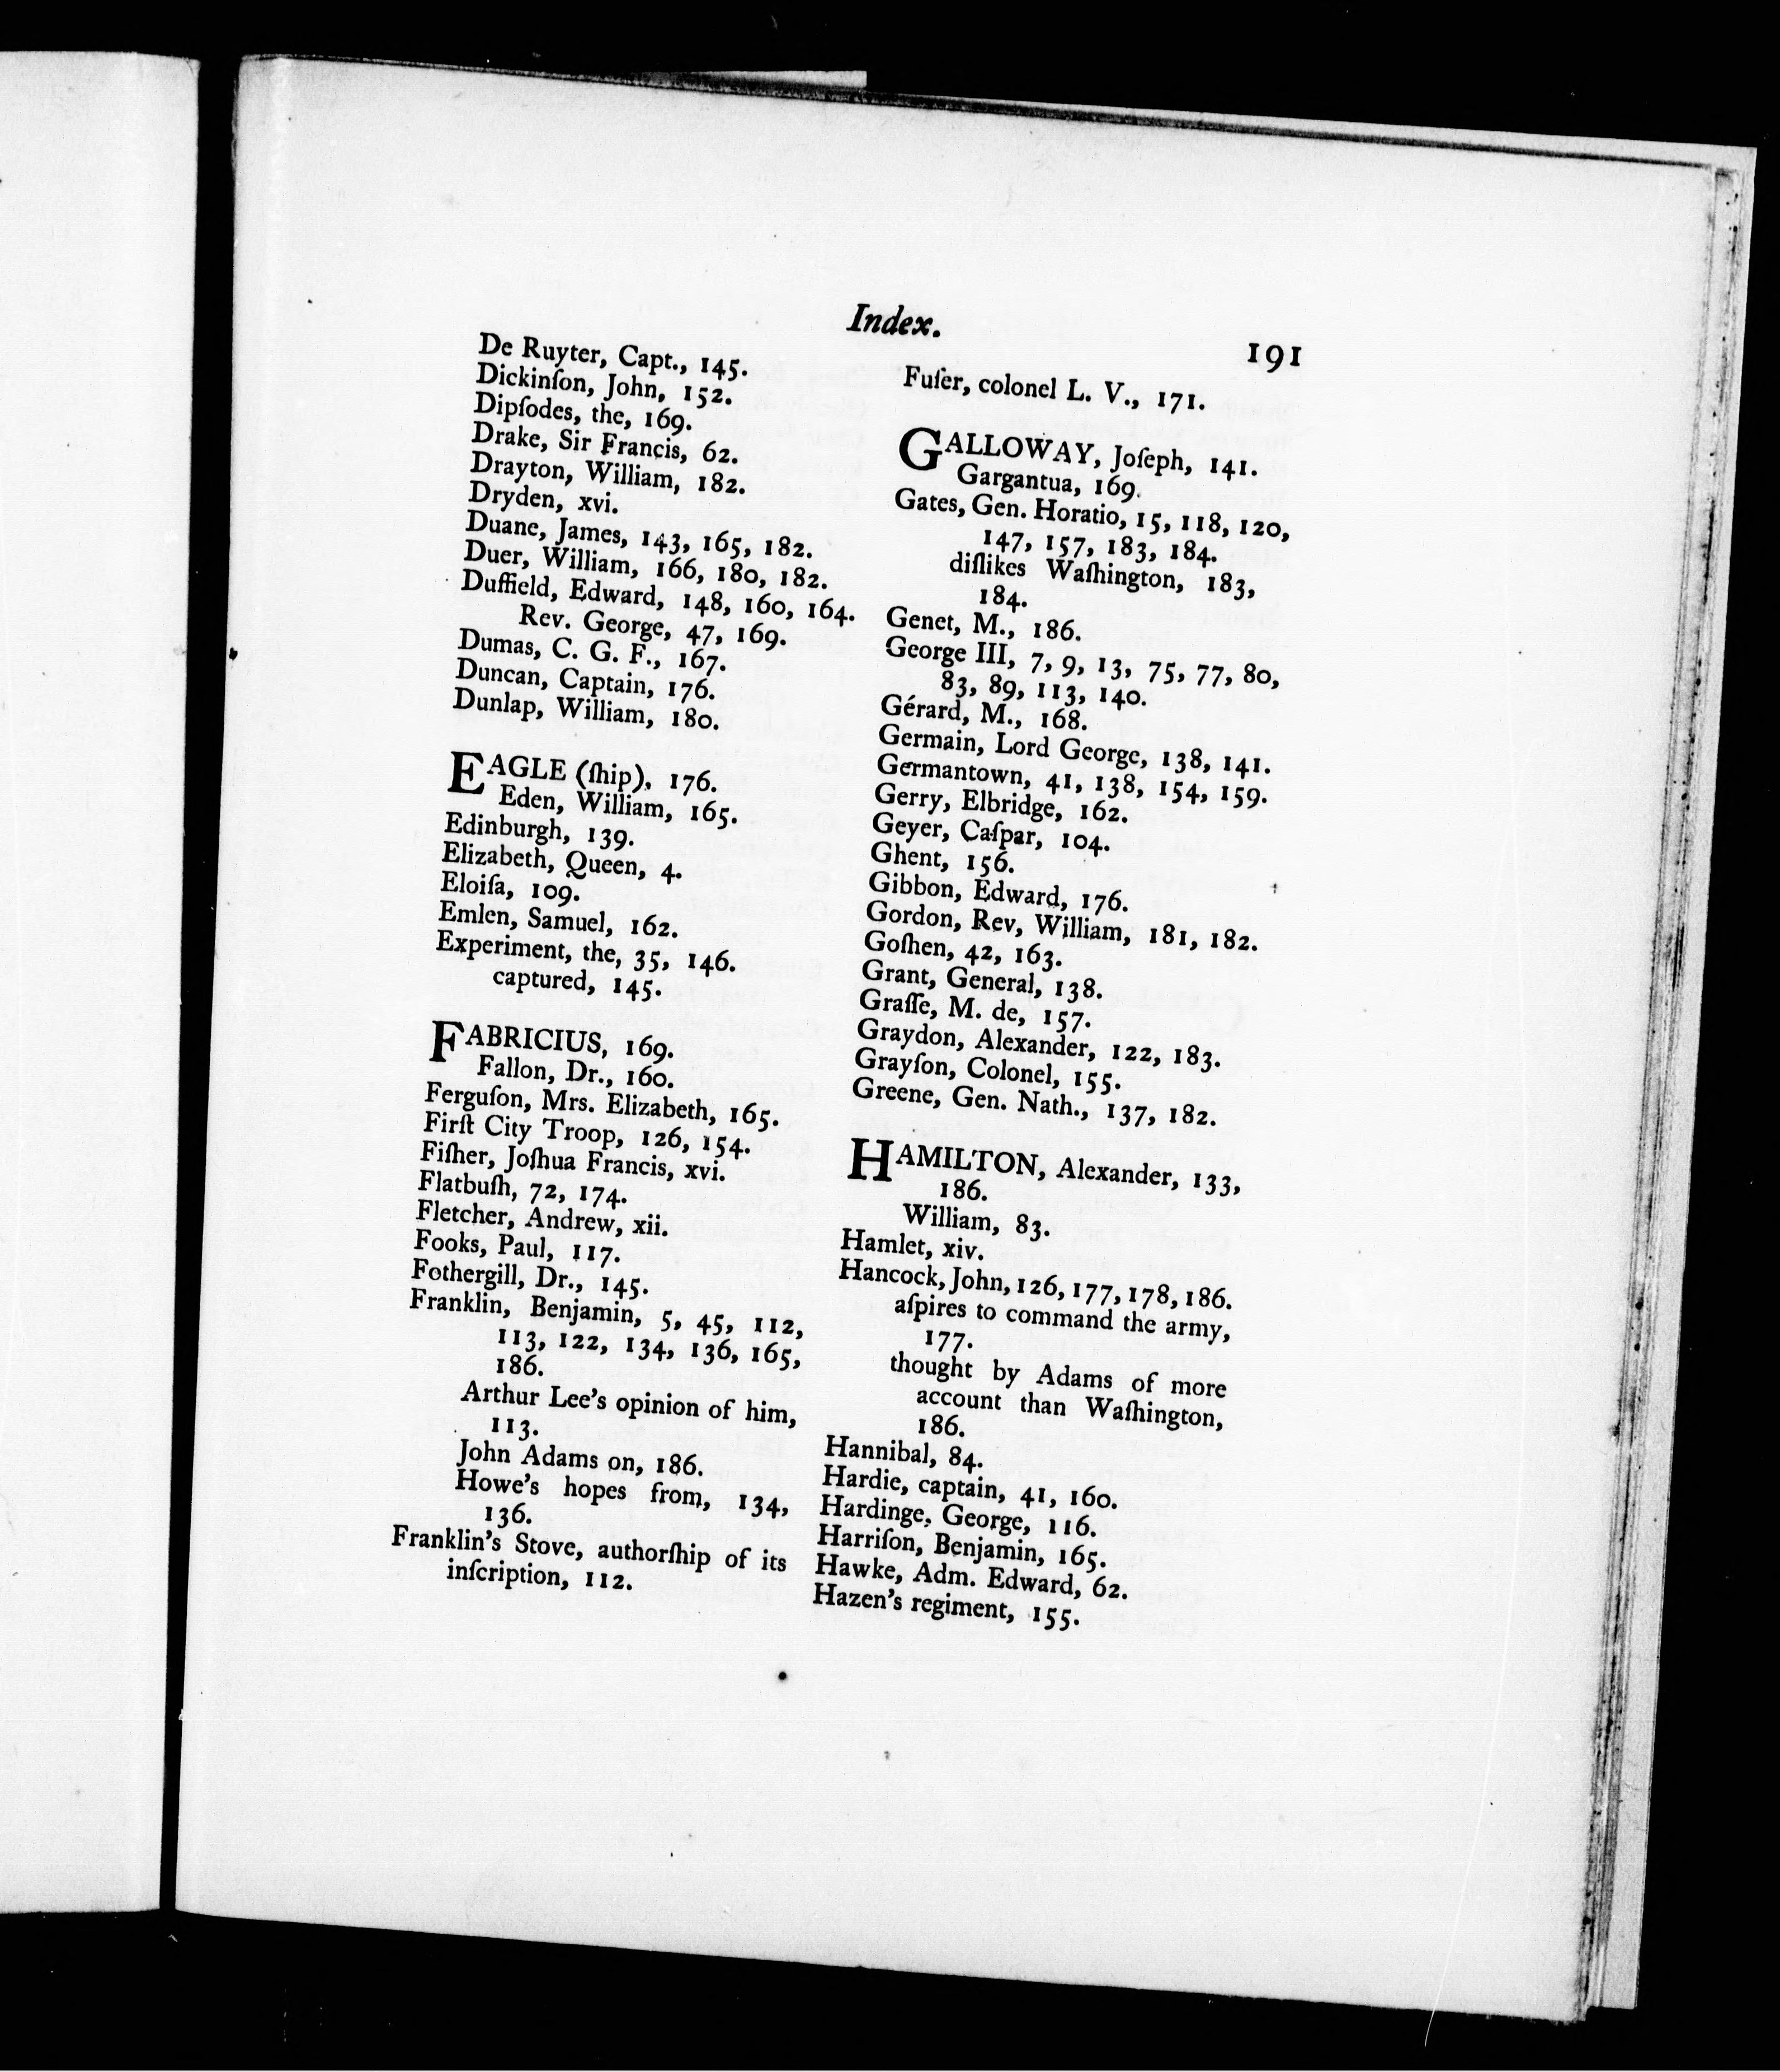 Index.
191
De Ruyter, Capt., 145.
Dickinſon, John, 152.
Dipſodes, the, 169.
Drake, Sir Francis, 62.
Drayton, William, 182.
Dryden, xvi.
Duane, James, 143, 165, 182.
Duer, William, 166, 180, 182.
Duffield, Edward, 148, 160, 164.
Rev. George, 47, 169.
Dumas, C. G. F., 167.
Duncan, Captain, 176.
Dunlap, William, 180.
EAGLE (ſhip), 176.
Eden, William, 165.
Edinburgh, 139.
Elizabeth, Queen, 4.
Eloiſa, 109.
Emlen, Samuel, 162.
Experiment, the, 35, 146.
captured, 145.
FABRICIUS, 169.
Fallon, Dr., 160.
Ferguſon, Mrs. Elizabeth, 165.
Firſt City Troop, 126, 154.
Fiſher, Joſhua Francis, xvi.
Flatbuſh, 72, 174.
Fletcher, Andrew, xii.
Fooks, Paul, 117.
Fothergill, Dr., 145.
Franklin, Benjamin, 5, 45, 112,
113, 122, 134, 136, 165,
186.
Arthur Lee's opinion of him,
113.
John Adams on, 186.
Howe's hopes from, 134,
136.
Franklin's Stove, authorſhip of its
inſcription, 112.
Fuſer, colonel L. V., 171.
GALLOWAY, Joſeph, 141.
Gargantua, 169.
Gates, Gen. Horatio, 15, 118, 120,
147, 157, 183, 184.
diſlikes Waſhington, 183,
184.
Genet, M., 186.
George III, 7, 9, 13, 75, 77, 80,
83, 89, 113, 140.
Gérard, M., 168.
Germain, Lord George, 138, 141.
Germantown, 41, 138, 154, 159.
Gerry, Elbridge, 162.
Geyer, Caſpar, 104.
Ghent, 156.
Gibbon, Edward, 176.
Gordon, Rev, William, 181, 182.
Goſhen, 42, 163.
Grant, General, 138.
Graſſe, M. de, 157.
Graydon, Alexander, 122, 183.
Grayſon, Colonel, 155.
Greene, Gen. Nath., 137, 182.
HAMILTON, Alexander, 133,
186.
William, 83.
Hamlet, xiv.
Hancock, John, 126, 177, 178, 186.
aſpires to command the army,
177.
thought by Adams of more
account than Waſhington,
186.
Hannibal, 84.
Hardie, captain, 41, 160.
Hardinge, George, 116.
Harriſon, Benjamin, 165.
Hawke, Adm. Edward, 62.
Hazen's regiment, 155.